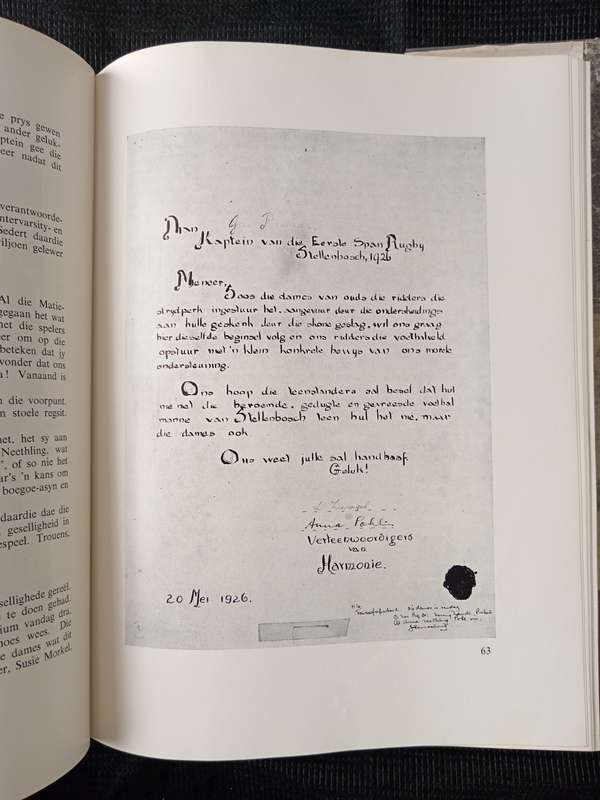 e prys gewen
ander geluk-
ptein gee die
eer nadat dit
verantwoorde-
ntervarsity- en
Sedert daardie
viljoen gelewer
Al die Matie-
gegaan het wat
net die spelers
eer om op die
beteken dat jy
vonder dat ons
a! Vanaand is
n die voorpunt.
n stoele regsit.
net, het sy aan
Neethling, wat
of so nie het
ar's 'n kans om
boegoe-asyn en
daardie dae die
geselligheid in
espeel. Trouens,
sellighede gereël.
te doen gehad.
ium vandag dra,
noes wees. Die
e dames wat dit
er, Susie Morkel,
Aan
Kaptein van die Eerste Span Rugby
Stellenbosch, 1926
Meneer,
Soos die dames van ouds die ridders die
strydperk ingestuur het, aangevuur deur die onderskeidings
aan hulle geskenk deur die skone geslag, wil ons graag
hier dieselfde beginsel volg en ons ridders die voetbalveld
opstuur met 'n klein konkrete bewys van ons morele
ondersteuning.
Ons hoop die teenstanders sal besef dat hul
nie net die beroemde, gedugte en gevreesde voetbal
manne van Stellenbosch teen hul het nie, maar
die dames ook.
Ons weet julle sal handhaaf.
Geluk!
Anna Pohl
Verteenwoordigers
van
Harmonie.
20 Mei 1926.
63